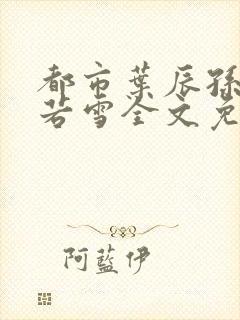 都市葉辰孫
若雪全文免
阿藍伊